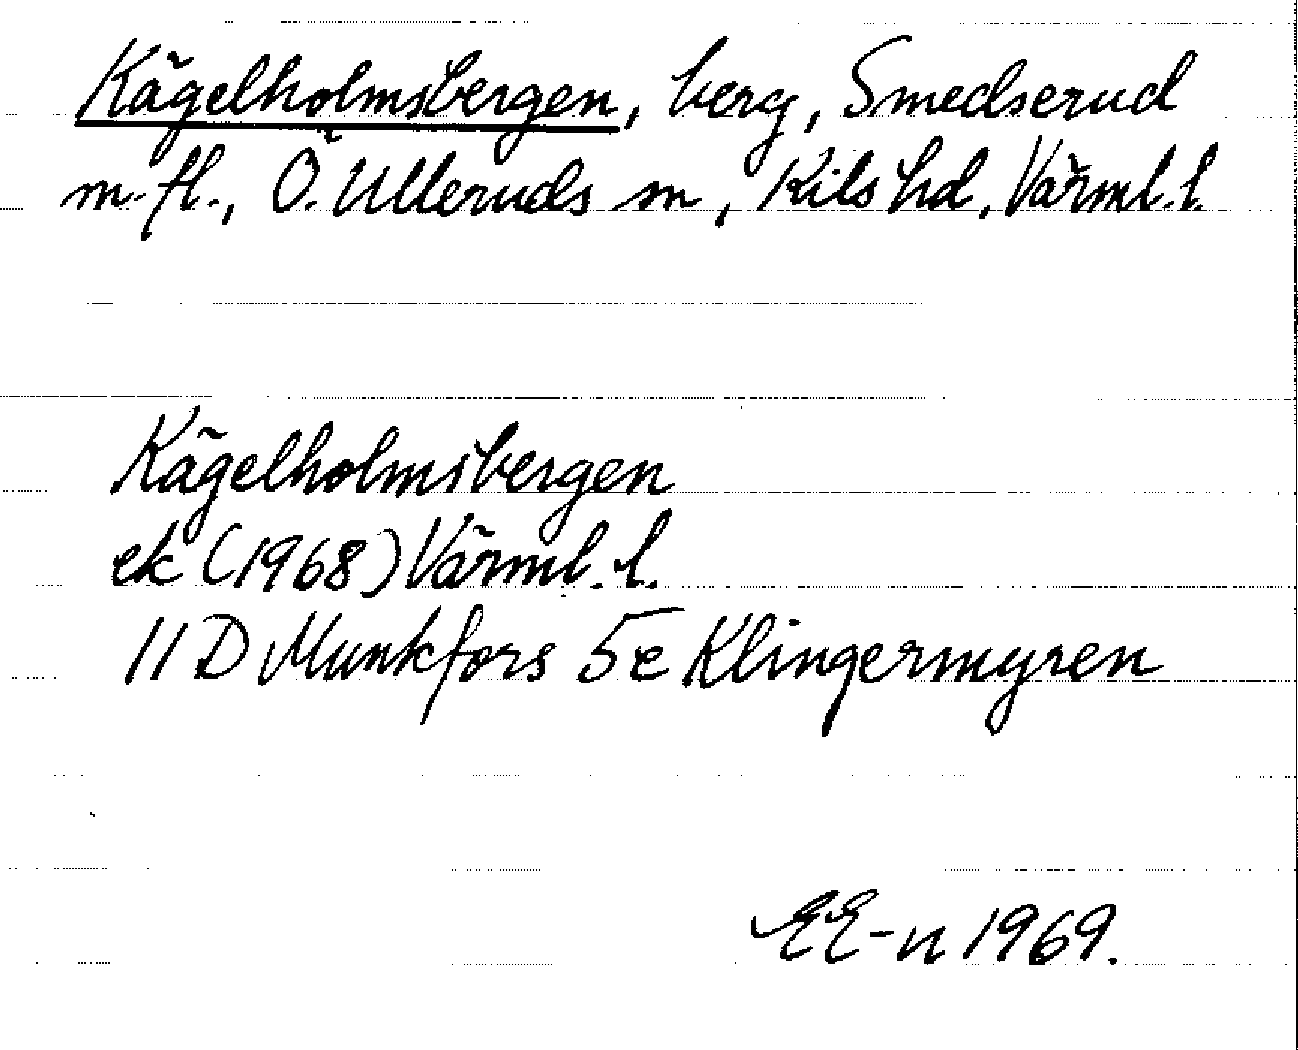 Kägelholmsbergen, berg, Smedserud
m. fl., Ö. Ulleruds sn, Kils hd, Värml. l.
Kägelholmsbergen
ek (1968) Värml. l.
11 D Munkfors 5e Klingermyren
EE-n 1969.